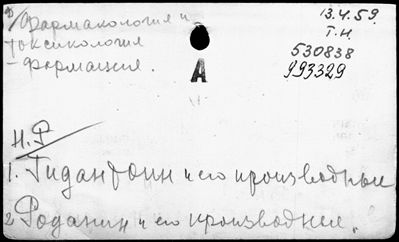 Фармакология и
токсикология
– фармация.
13.4.59.
Т.Н
530838
993329
А
Н.Р
1. Гидантоин и его производные
2 Роданин и его производные.